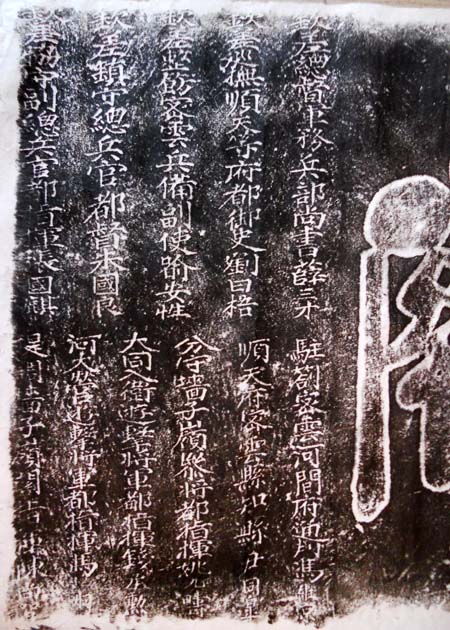 欽差總督軍務兵部尚書薛三才
欽差巡撫順天等府都御史劉曰梧
欽差整飭密雲兵備副使喻安性
欽差鎮守總兵官都督朱國良
欽差協守副總兵官都張國祺
駐劄密雲河間府通判馮
順天府密雲縣知縣
分守墻子嶺參將都指揮時
大同入衛遊擊將軍都指揮勳
河大營遊擊將軍都指揮馬
子嶺關